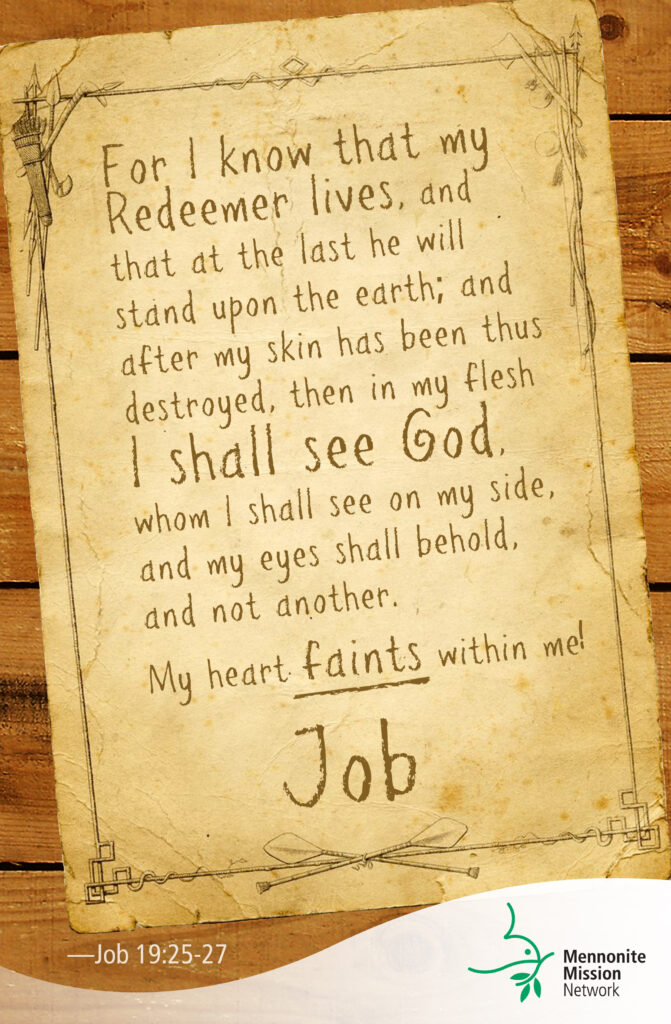 For I know that my
Redeemer lives, and
that at the last he will
stand upon the earth; and
after my skin has been thus
destroyed, then in my flesh
I shall see God,
whom I shall see on my side,
and my eyes shall behold,
and not another.
My heart faints within me!
Job
—Job 19:25-27
Mennonite
Mission
Network